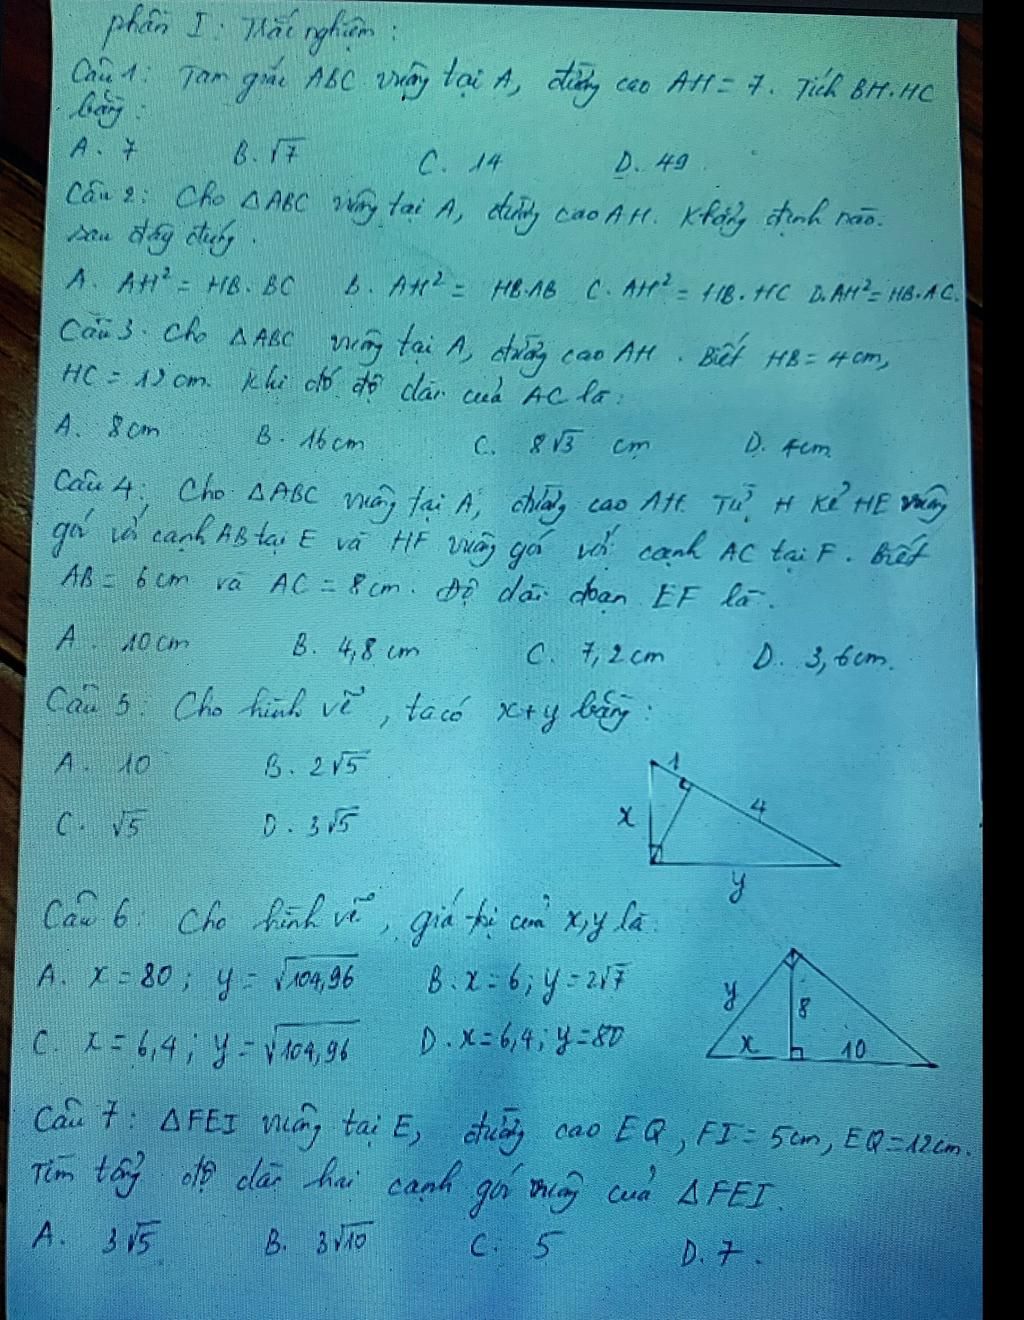 phần I: Trắc nghiệm:
Câu 1: Tam giác ABC vuông tại A, đường cao AH = 7. Tích BH.HC
bằng:
A. 7 B. √7 C. 14 D. 49.
Câu 2: Cho △ABC vuông tại A, đường cao AH. Khẳng định nào.
sau đây đúng.
A. AH² = HB.BC B. AH² = HB.AB C. AH² = HB.HC D. AH² = HB.AC.
Câu 3. Cho △ABC vuông tại A, đường cao AH. Biết HB = 4cm,
HC = 12cm. Khi đó độ dài của AC là:
A. 8cm B. 16cm C. 8√3 cm D. 4cm
Câu 4: Cho △ABC vuông tại A, đường cao AH. Từ H kẻ HE vuông
góc với cạnh AB tại E và HF vuông góc với cạnh AC tại F. Biết
AB = 6cm và AC = 8cm. Độ dài đoạn EF là.
A. 10cm B. 4,8cm C. 7,2cm D. 3,6cm.
Câu 5: Cho hình vẽ, ta có x+y bằng:
A. 10 B. 2√5
C. √5 D. 3√5
1
x
4
y
Câu 6: Cho hình vẽ, giá trị của x,y là:
A. x = 80; y = √104,96 B. x = 6; y = 2√7
C. x = 6,4; y = √104,96 D. x = 6,4; y = 80
y
8
x
10
Câu 7: △FEI vuông tại E, đường cao EQ, FI = 5cm, EQ = 12cm.
Tìm tổng độ dài hai cạnh góc vuông của △FEI.
A. 3√5 B. 3√10 C. 5 D. 7.